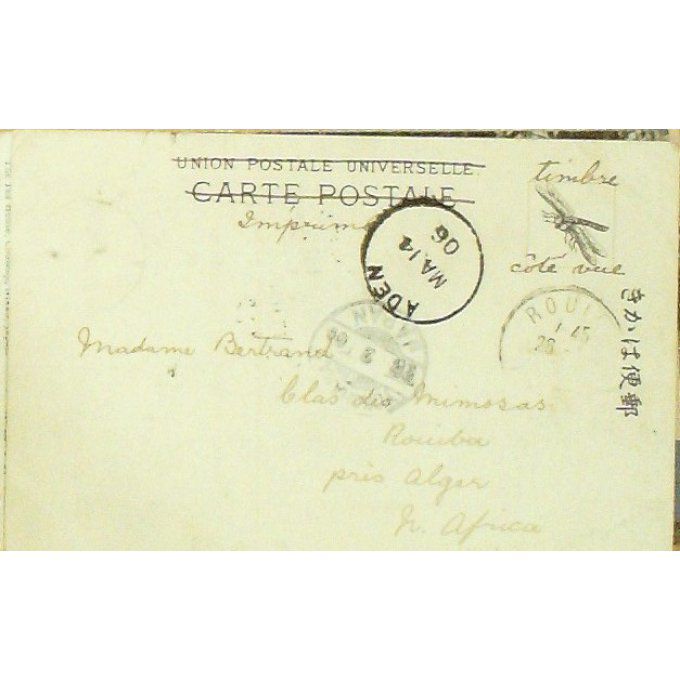 UNION POSTALE UNIVERSELLE
CARTE POSTALE
timbre
côté vue
ADEN
MA 14
06
ROUI
JAPAN
きかは便郵
Madame Bertrand
Clos des Mimosas
Rouiba
près Alger
N. Africa